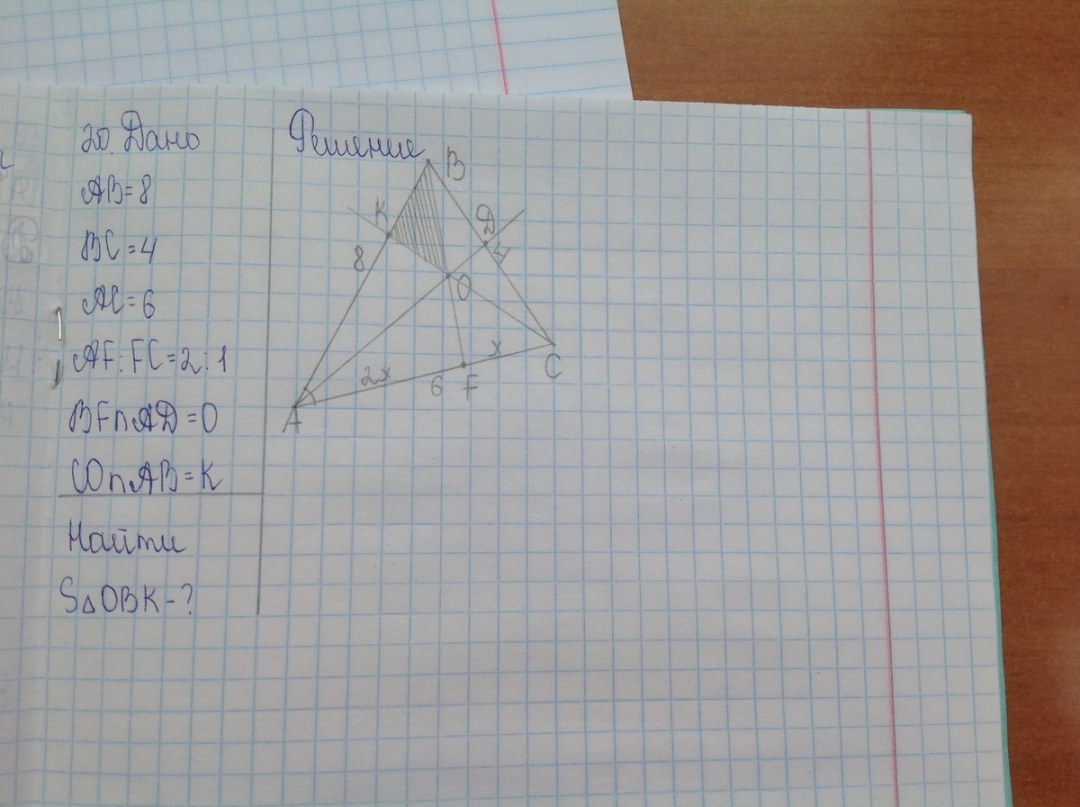 20. Дано
AB=8
BC=4
AC=6
AF:FC=2:1
BF∩AD=O
CO∩AB=K
Найти
S△OBK-?
Решение
B
K
D
8
4
O
2x
x
6
F
C
A